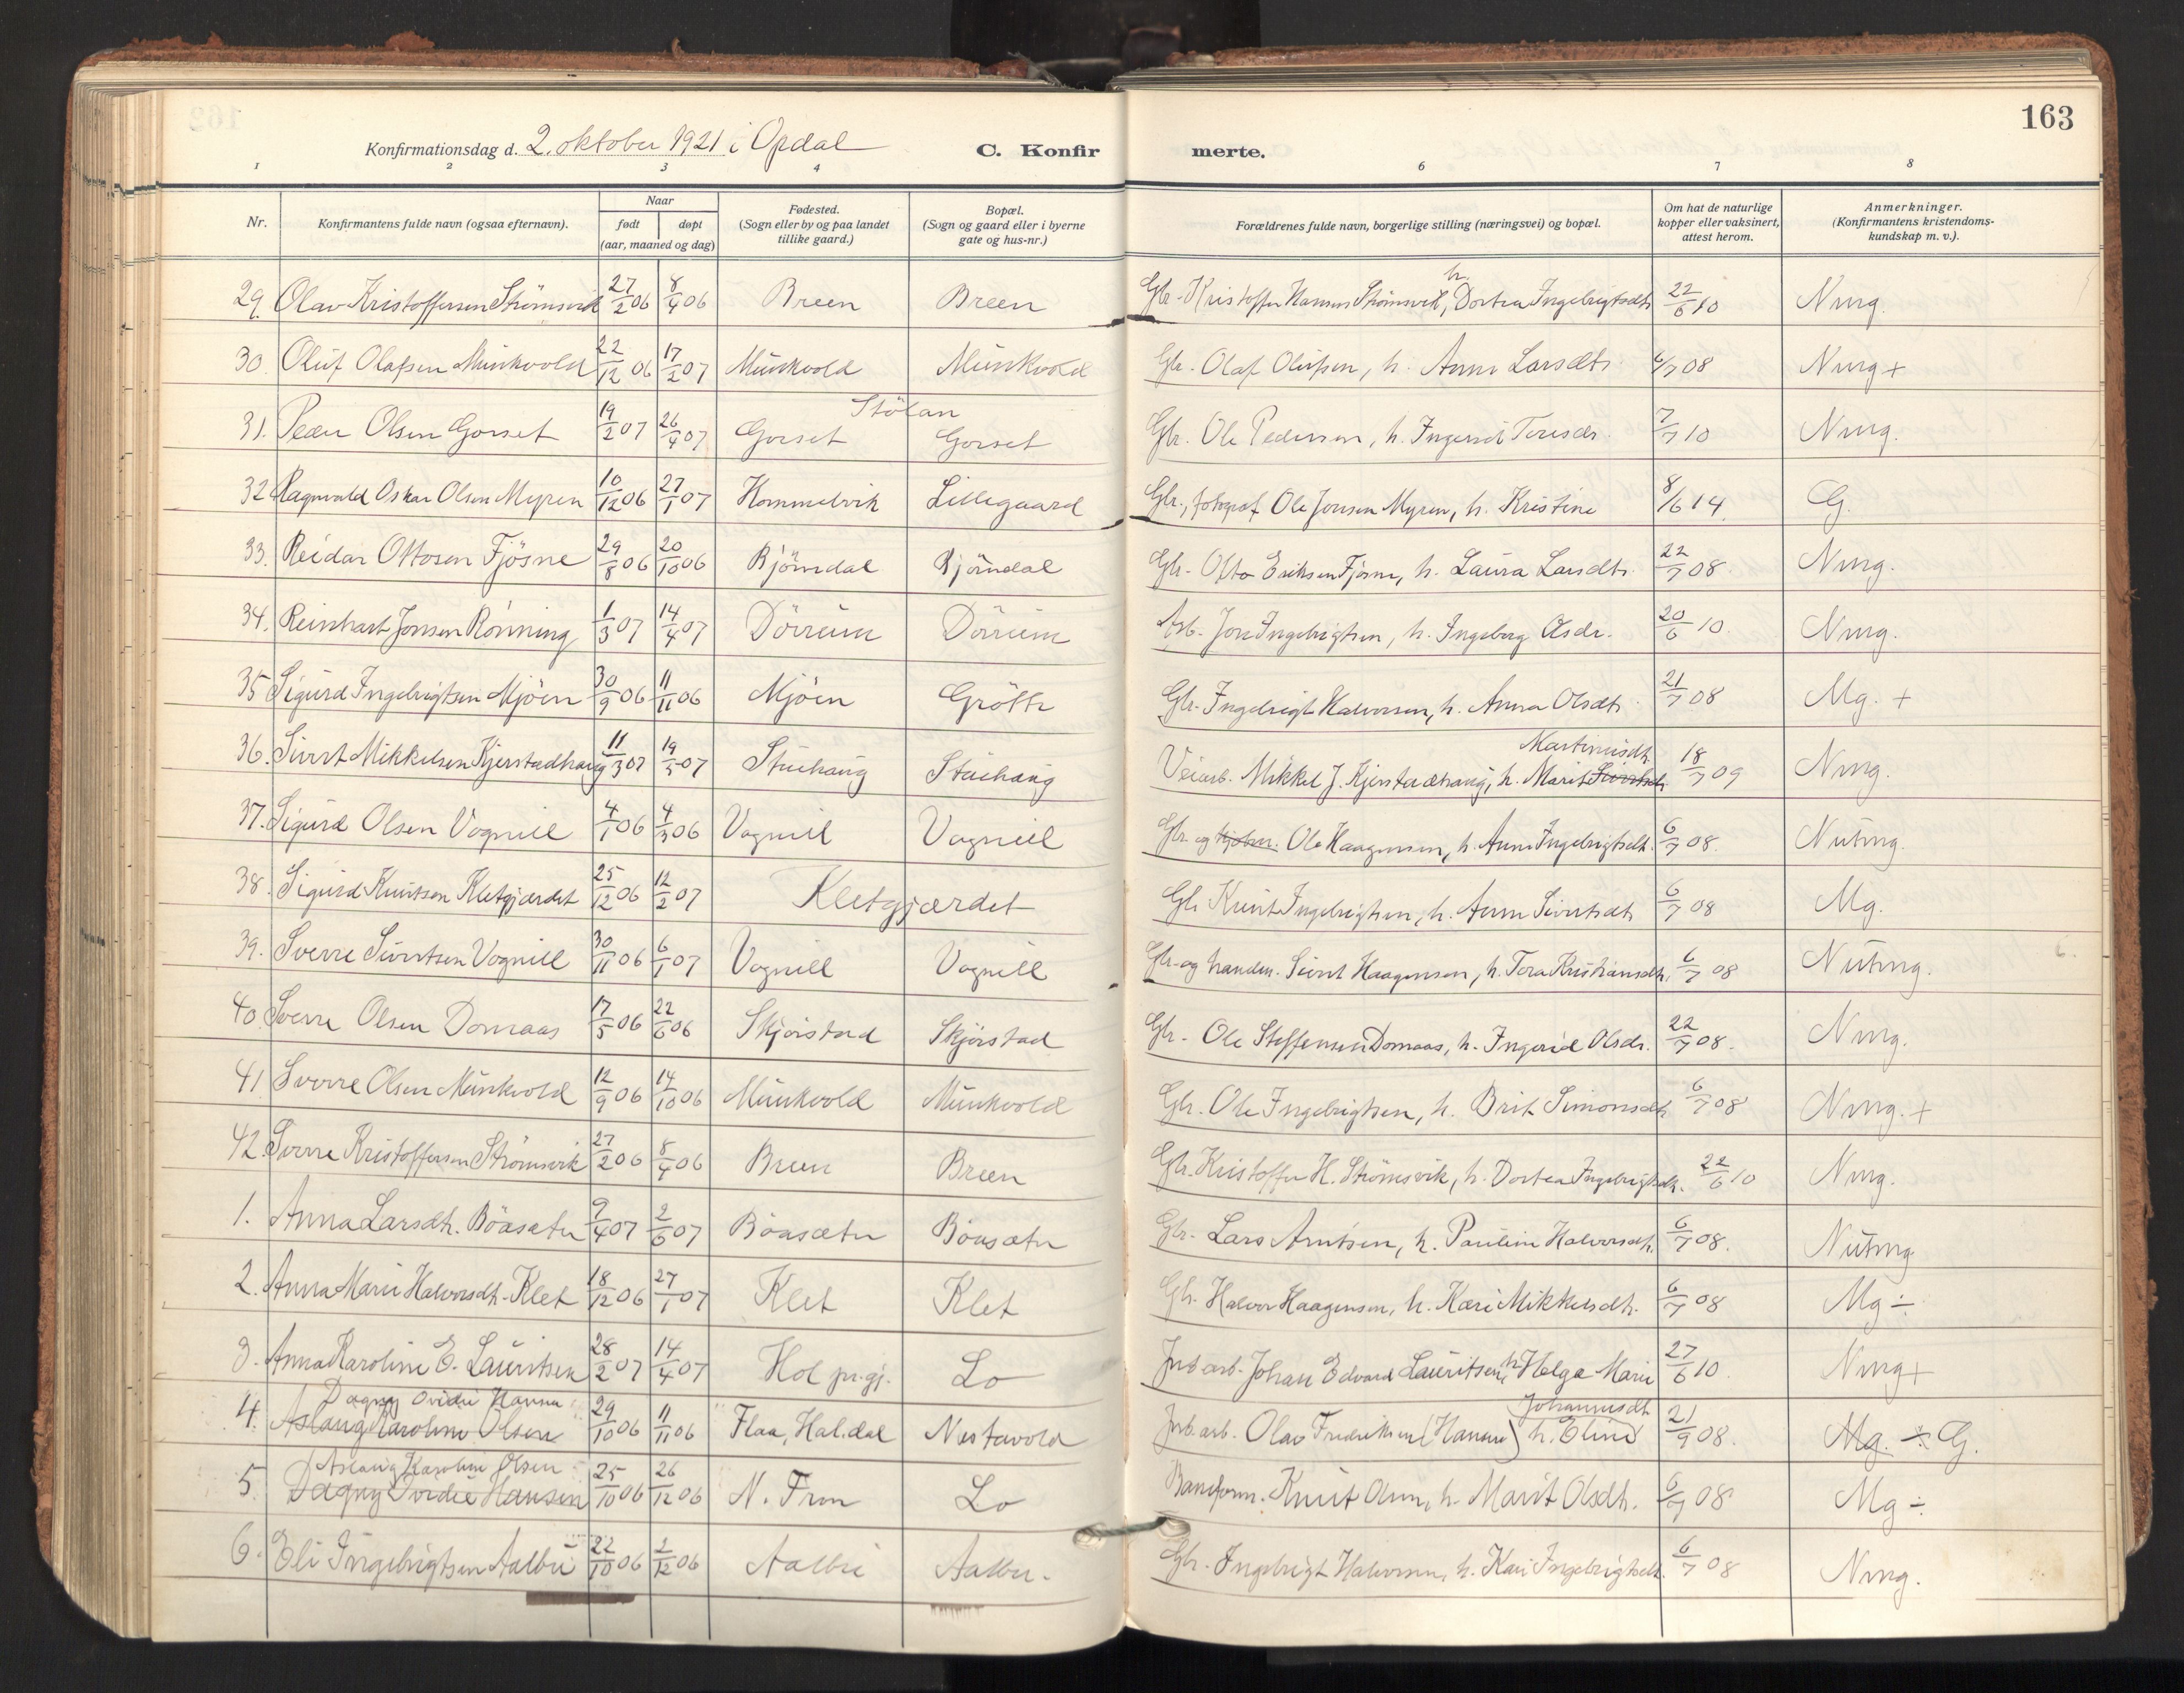 163
Konfirmationsdag d. 2. oktober 1921 i Opdal C. Konfir merte.
1 2 3 4 6 7 8
Nr. Konfirmantens fulde navn (ogsaa efternavn). Naar født døpt (aar, maaned og dag) Fødested. (Sogn eller by og paa landet tillike gaard.) Bopæl. (Sogn og gaard eller i byerne gate og hus-nr.) Forældrenes fulde navn, borgerlige stilling (næringsvei) og bopæl. Om hat de naturlige kopper eller vaksinert, attest herom. Anmerkninger. (Konfirmantens kristendoms-kundskap m. v.).
29. Olav Kristoffersen Strömsvik 27/2 06 8/4 06 Breen Breen Gbr. Kristoffer Hansen Strömsvik, h. Dortea Ingebrigtsdtr 22/6 10 Nmg.
30. Oluf Olafsen Munkvold 22/12 06 17/2 07 Munkvold Munkvold Gbr. Olaf Olufsen, h. Anne Larsdtr 6/7 08 Nmg +
31. Peder Olsen Gorset 19/2 07 26/4 07 Gorset Stölan Gorset Gbr. Ole Pedersen, h. Ingerid Toresdr. 7/7 10 Nmg.
32 Ragnvald Oskar Olsen Myren 10/12 06 27/1 07 Hommelvik Lillegaard Gbr., fotograf Ole Jonsen Myren, h. Kristine 8/6 14 G.
33. Reidar Ottosen Fjösne 29/8 06 20/10 06 Björndal Björndal Gbr. Otto Eriksen Fjösne, h. Laura Larsdtr. 22/7 08 Nmg.
34. Reinhart Jonsen Rönning 1/3 07 14/4 07 Dörrum Dörrum Arb. Jon Ingebrigtsen, h. Ingeborg Olsdr. 20/6 10. Nmg.
35 Sigurd Ingebrigtsen Mjöen 30/9 06 11/11 06 Mjöen Grötte Gbr. Ingebrigt Halvorsen, h. Anna Olsdtr 21/7 08 Mg. +
36. Sivert Mikkelsen Kjerstadhaug 11/3 07 19/5 07 Stuehaug Stuehaug Veiarb. Mikkel J. Kjerstadhaug, h. Marit Sivertsdtr. Martinusdtr. 18/7 09 Nmg.
37. Sigurd Olsen Vognill 4/1 06 4/3 06 Vognill Vognill Gbr. og Ole Haagensen, h. Anne Ingebrigtsdtr. 6/7 08. Nutmg.
38. Sigurd Knutsen Kletgjærdet 25/12 06 12/2 07 Kletgjærdet Gbr Knut Ingebrigtsen, h. Anne Sivertsdtr 6/7 08 Mg.
39. Sverre Sivertsen Vognill 30/11 06 6/1 07 Vognill Vognill Gbr. og handm. Sivert Haagensen, h. Tora Kristiansdtr. 6/7 08 Nutmg.
40. Sverre Olsen Domaas 17/5 06 22/6 06 Skjörstad Skjörstad Gbr. Ole Steffensen Domaas, h. Ingerid Olsdr. 22/7 08. Nmg.
41 Sverre Olsen Munkvold 12/9 06 14/10 06 Munkvold Munkvold Gbr. Ole Ingebrigtsen, h. Brit Simonsdtr 6/7 08 Nmg. +
42. Sverre Kristoffersen Strömsvik 27/2 06 8/4 06 Breen Breen Gbr. Kristoffer H. Strömsvik, h. Dortea Ingebrigtsdtr. 22/6 10 Nmg.
1. Anna Larsdtr. Böasæter 9/4 07 2/6 07 Böasæter Böasæter Gbr. Lars Arntsen, h. Pauline Halvorsdtr. 6/7 08. Nutmg
2. Anna Marie Halvorsdtr. Klet 18/12 06 27/1 07 Klet Klet Gbr. Halvor Haagensen, h. Kari Mikkelsdtr. 6/7 08 Mg ÷
3. Anna Karoline E. Lauritsen 28/2 07 14/4 07 Hol pr.gj. Lo Jnb arb. Johan Edvard Lauritsen, h. Helga Marie 27/6 10. Nmg +
4. Aslaug Karoline Olsen Dagny Ovidie Hansen 29/10 06 11/11 06 Flaa, Hal.dal Nestavold Jnb. arb. Olav Fredriksen (Hansen) h. Eline Johannesdtr 21/9 08. Mg. ÷ G.
5. Dagny Ovidie Hansen Aslaug Karoline Olsen 25/10 06 26/12 06 N. Fron Lo Baneform. Knut Olsen, h. Marit Olsdtr. 6/7 08 Mg ÷
6. Eli Ingebrigtsen Aalbu 22/10 06 2/12 06 Aalbu Aalbu. Gbr. Ingebrigt Halvorsen, h. Kari Ingebrigtsdtr. 6/7 08 Nmg.